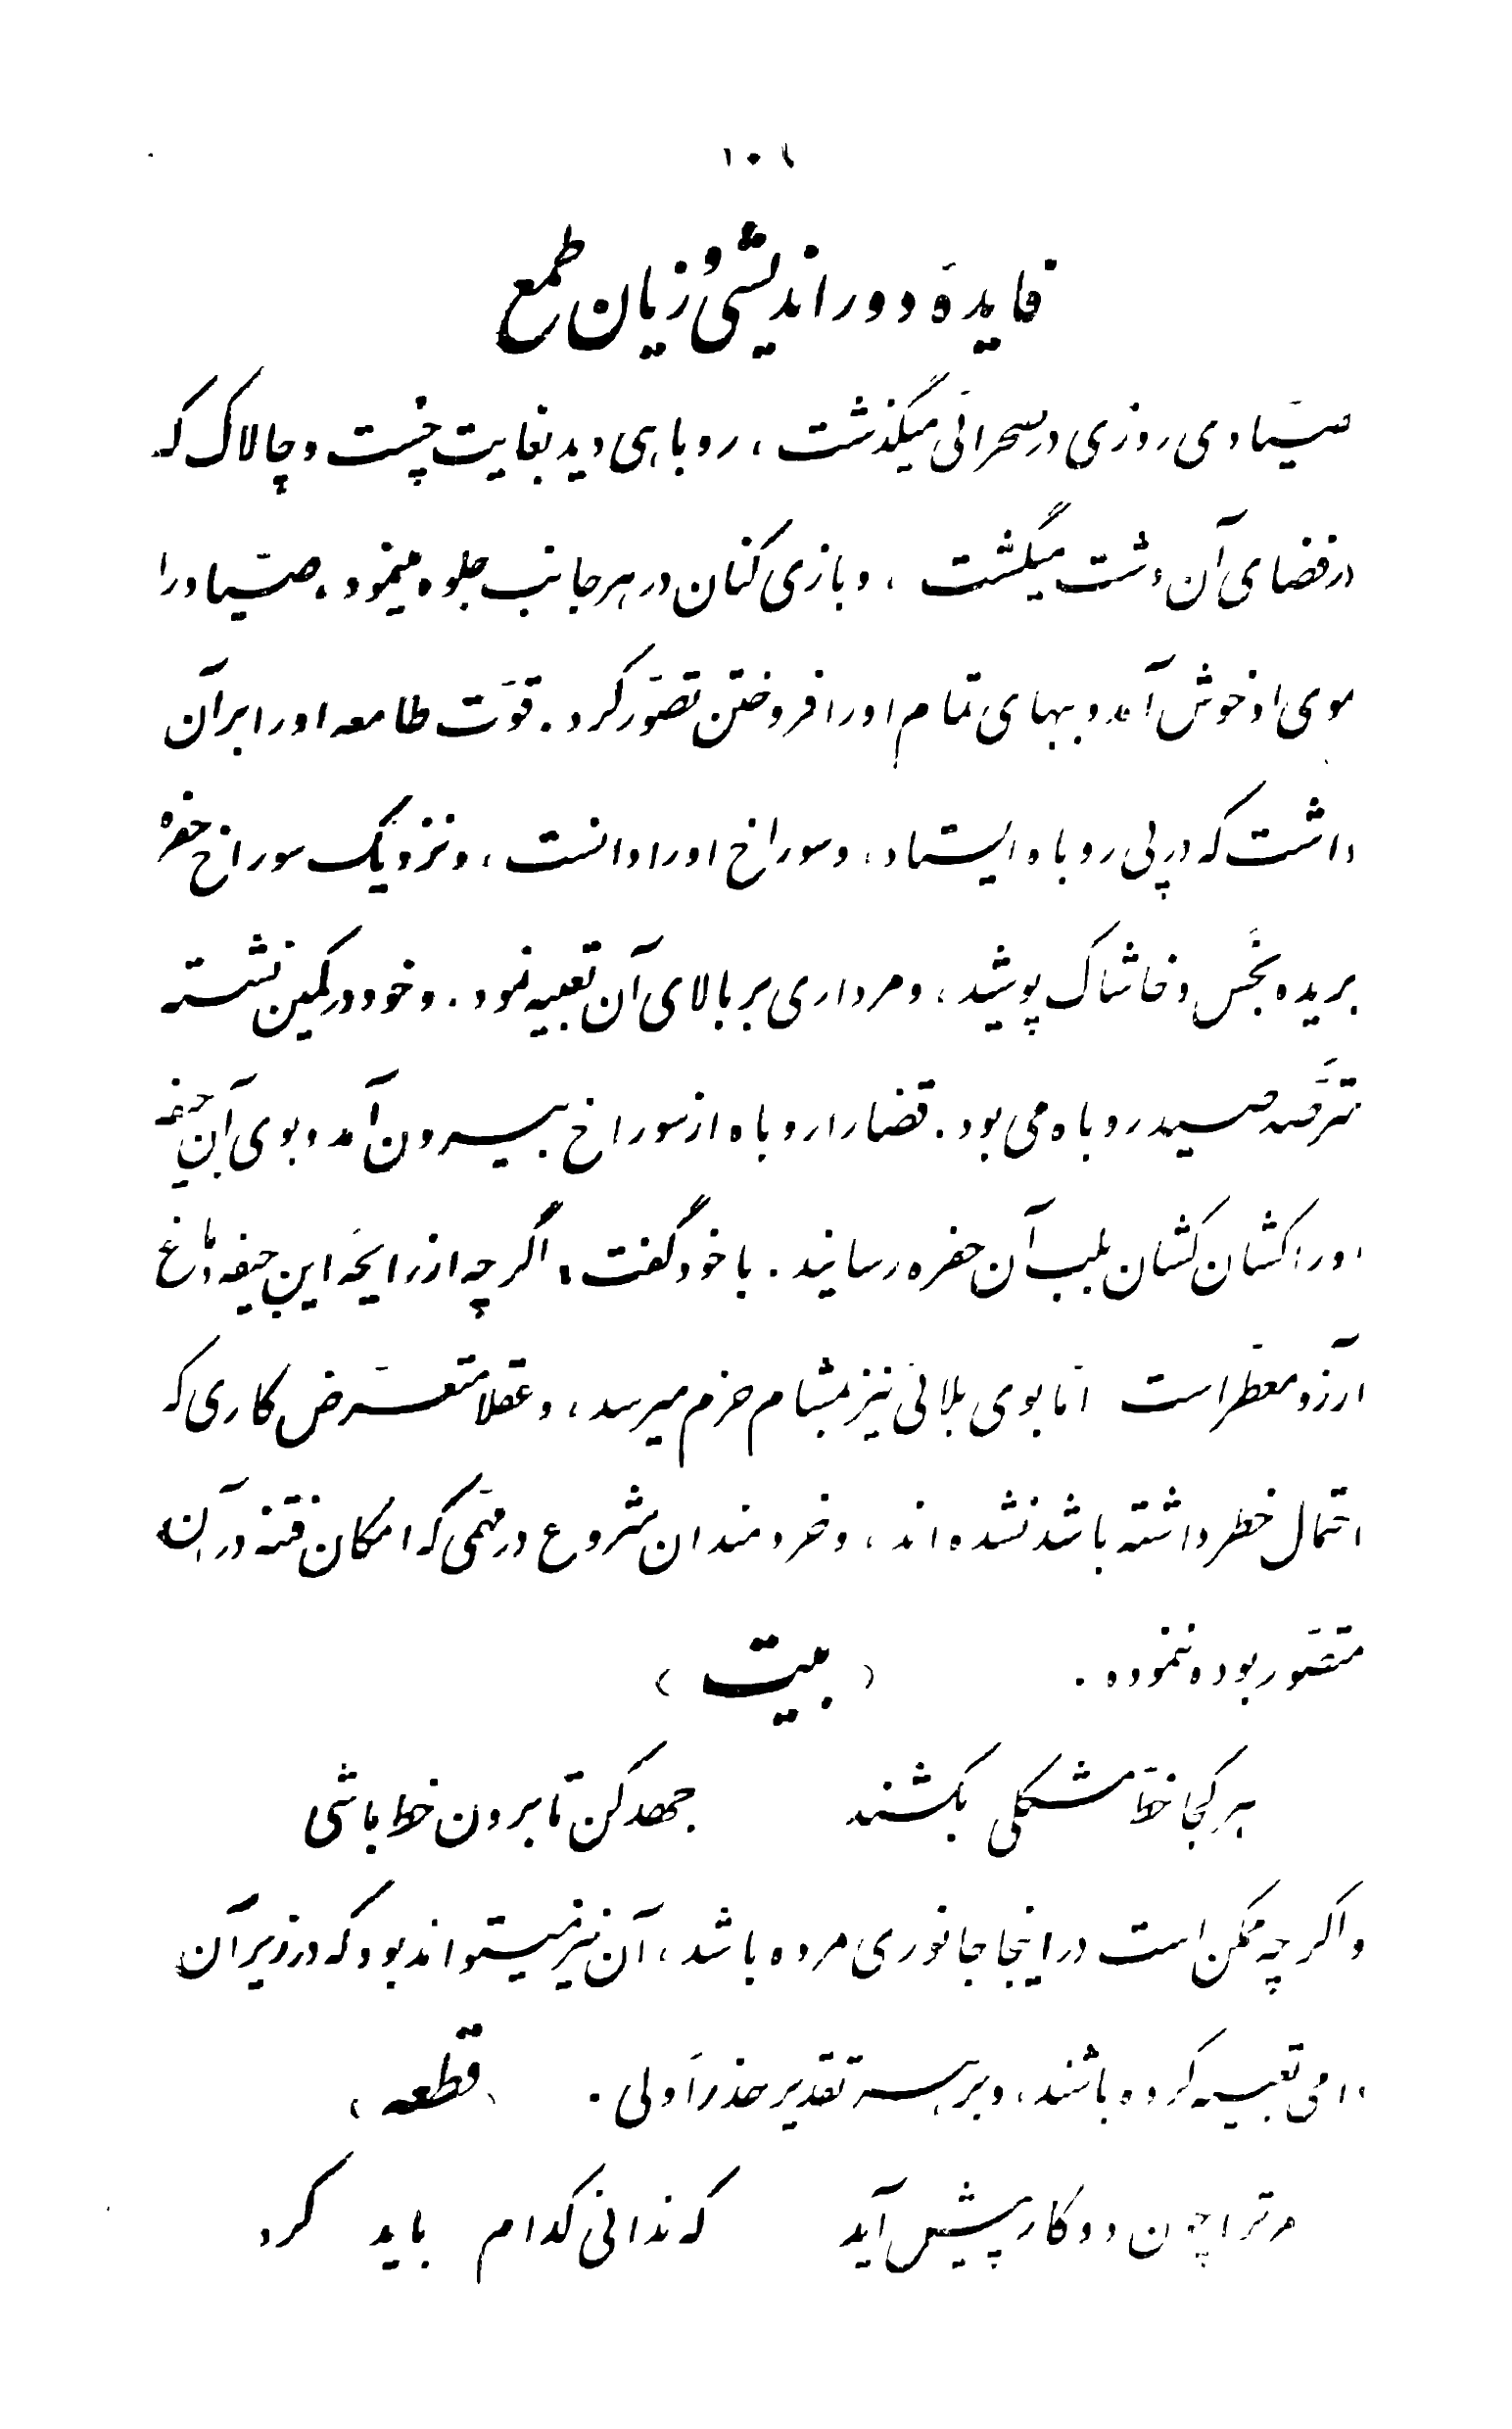 فایدهٔ دوراندیشی و زیان طمع
صیّادی روزی در صحرائی میگذشت، روباهی دید بغایت چُست و چالاک که
در فضای آن دشت میگشت، و بازی کنان در هر جانب جلوه مینمود. صیّاد را
موی او خوش آمد و ببهای تمام او را فروختن تصوّر کرد. قوّت طامعه او را بر آن
داشت که در پی روباه ایستاد، و سوراخ او را دانست، و نزدیک سوراخ حفره
بریده بخَس و خاشاک پوشید، و مرداری بر بالای آن تعبیه نمود. و خود در کمین نشسته
مترصّد صید روباه می بود. قضا را روباه از سوراخ بیرون آمد و بوی آن جیفه
او را کشان کشان بلب آن حفره رسانید. با خود گفت، اگر چه از رایحَه این جیفه دماغ
آرزو معطّر است امّا بوی بلائی نیز بمشام حزم میرسد، و عقلا متعرّض کاری که
احتمال خطر داشته باشد نشده اند، و خردمندان شروع در مهمّی که امکان فتنه در آن
متصّور بوده ننموده.          (بیت)
هر کجا خطّ مشکلی بکشند          جهد کن تا برون خط باشی
و اگر چه ممکن است در اینجا جانوری مرده باشد، آن نیز میتواند بود که در زیر آن
دامی تعبیه کرده باشند، و بر هر تقدیر حذر اَولی.          (قطعه)
مر ترا چون دو کار پیش آید          که ندانی کدام باید کرد